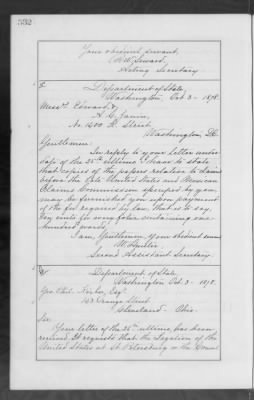 532
Your obedient servant,
F. W. Seward,
Acting Secretary.
Department of State,
Washington, Oct 3 - 1878.
Messrs Edward &
A. C. Janin,
No. 1400 H. Street
Washington, D.C.
Gentlemen:
In reply to your letter under
date of the 25th ultimo I have to state
that copies of the papers relative to claims
before the late United States and Mexican
Claims Commission specified by you,
may be furnished you upon payment
of the fee required by law, that is to say,
ten cents for every folio containing one
hundred words.
I am, Gentlemen, your obedient servant
W. Hunter
Second Assistant Secretary.
Department of State.
Washington Oct 3 - 1878.
Esq
Orange Street
Cleveland - Ohio.
Sir:
Your letter of the 25th ultimo, has been
received. It requests that the Legation of the
United States at St Petersburg or the Consul